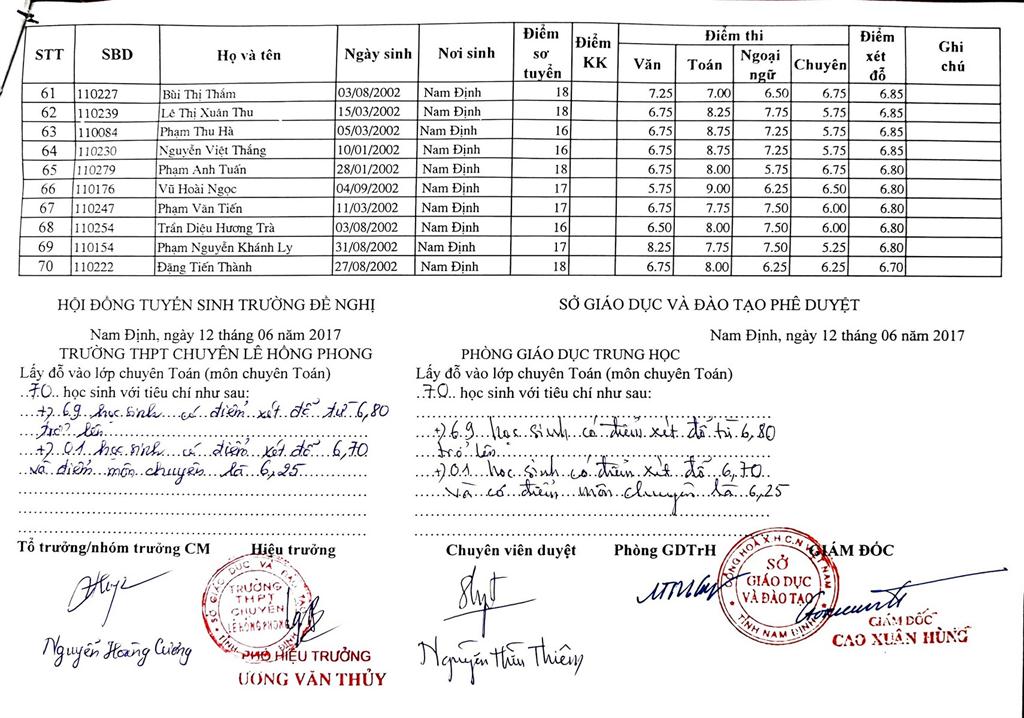 STT SBD Họ và tên Ngày sinh Nơi sinh Điểm sơ tuyển Điểm KK Điểm thi Văn Toán Ngoại ngữ Chuyên Điểm xét đỗ Ghi chú
61 110227 Bùi Thị Thắm 03/08/2002 Nam Định 18 7.25 7.00 6.50 6.75 6.85
62 110239 Lê Thị Xuân Thu 15/03/2002 Nam Định 18 6.75 8.25 7.75 5.75 6.85
63 110084 Phạm Thu Hà 05/03/2002 Nam Định 16 6.75 8.75 7.25 5.75 6.85
64 110230 Nguyễn Việt Thắng 10/01/2002 Nam Định 16 6.75 8.75 7.25 5.75 6.85
65 110279 Phạm Anh Tuấn 28/01/2002 Nam Định 18 6.75 8.00 5.75 6.75 6.80
66 110176 Vũ Hoài Ngọc 04/09/2002 Nam Định 17 5.75 9.00 6.25 6.50 6.80
67 110247 Phạm Văn Tiến 11/03/2002 Nam Định 17 6.75 7.75 7.50 6.00 6.80
68 110254 Trần Diệu Hương Trà 03/08/2002 Nam Định 16 6.50 8.00 7.50 6.00 6.80
69 110154 Phạm Nguyễn Khánh Ly 31/08/2002 Nam Định 17 8.25 7.75 7.50 5.25 6.80
70 110222 Đặng Tiến Thành 27/08/2002 Nam Định 18 6.75 8.00 6.25 6.25 6.70
HỘI ĐỒNG TUYỂN SINH TRƯỜNG ĐỀ NGHỊ
Nam Định, ngày 12 tháng 06 năm 2017
TRƯỜNG THPT CHUYÊN LÊ HỒNG PHONG
Lấy đỗ vào lớp chuyên Toán (môn chuyên Toán)
..70.. học sinh với tiêu chí như sau:
+) 69 học sinh có điểm xét đỗ từ 6,80
trở lên
+) 01 học sinh có điểm xét đỗ 6,70
và điểm môn chuyên là 6,25
Tổ trưởng/nhóm trưởng CM Hiệu trưởng
SỞ GIÁO DỤC VÀ ĐÀO TẠO
TRƯỜNG
THPT
CHUYÊN
LÊ HỒNG PHONG
Nguyễn Hoàng Cương
PHÓ HIỆU TRƯỞNG
ƯƠNG VĂN THỦY
SỞ GIÁO DỤC VÀ ĐÀO TẠO PHÊ DUYỆT
Nam Định, ngày 12 tháng 06 năm 2017
PHÒNG GIÁO DỤC TRUNG HỌC
Lấy đỗ vào lớp chuyên Toán (môn chuyên Toán)
..70.. học sinh với tiêu chí như sau:
+) 69 học sinh có điểm xét đỗ từ 6,80
trở lên
+) 01 học sinh có điểm xét đỗ 6,70
và có điểm môn chuyên là 6,25
Chuyên viên duyệt Phòng GDTrH GIÁM ĐỐC
CỘNG HOÀ X.H.C.N VIỆT NAM
SỞ
GIÁO DỤC
VÀ ĐÀO TẠO
TỈNH NAM ĐỊNH
Nguyễn Hữu Thiêm
GIÁM ĐỐC
CAO XUÂN HÙNG